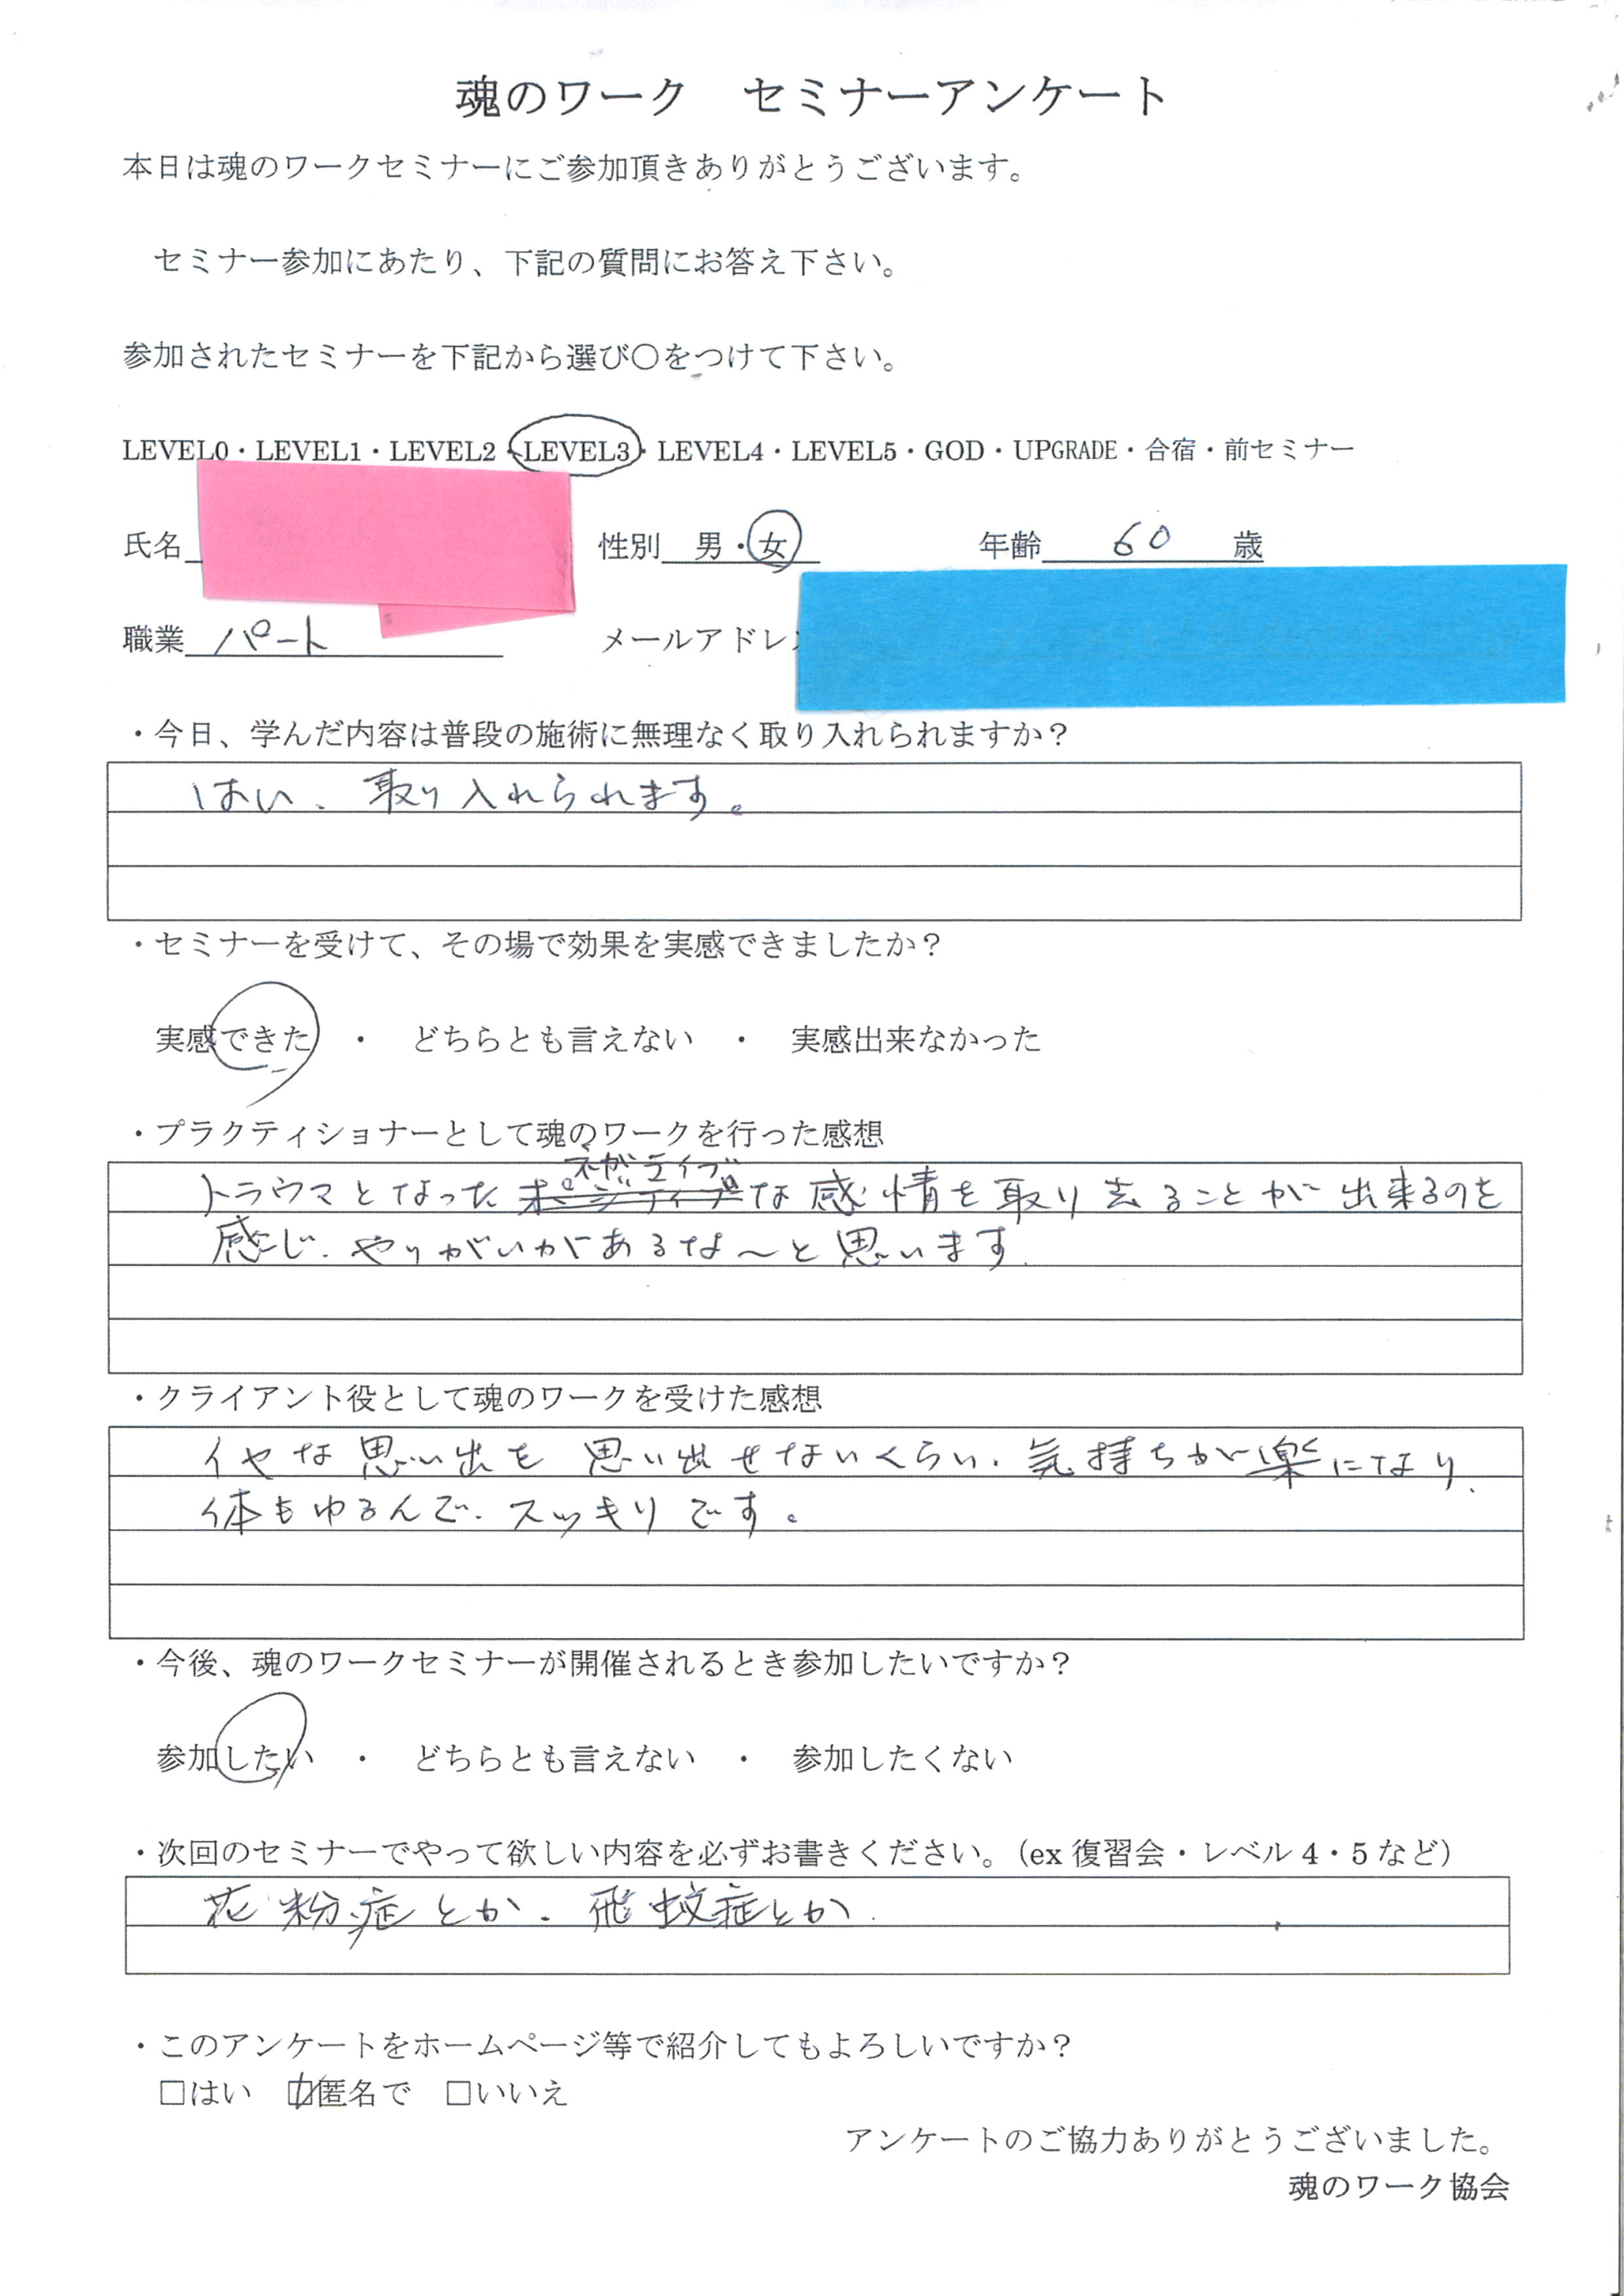 魂のワーク　セミナーアンケート
本日は魂のワークセミナーにご参加頂きありがとうございます。
セミナー参加にあたり、下記の質問にお答え下さい。
参加されたセミナーを下記から選び〇をつけて下さい。
LEVEL0・LEVEL1・LEVEL2・LEVEL3・LEVEL4・LEVEL5・GOD・UPGRADE・合宿・前セミナー
氏名　性別　男・女　年齢　60　歳
職業　パート　メールアドレ
・今日、学んだ内容は普段の施術に無理なく取り入れられますか？
はい、取り入れられます。
・セミナーを受けて、その場で効果を実感できましたか？
実感できた　・　どちらとも言えない　・　実感出来なかった
・プラクティショナーとして魂のワークを行った感想
ネガティブ
トラウマとなった ポジティブな感情を取り去ることが出来るのを
感じ、やりがいがあるな〜と思います
・クライアント役として魂のワークを受けた感想
イヤな思い出を思い出せないくらい、気持ちが楽になり、
体もゆるんで、スッキリです。
・今後、魂のワークセミナーが開催されるとき参加したいですか？
参加したい　・　どちらとも言えない　・　参加したくない
・次回のセミナーでやって欲しい内容を必ずお書きください。（ex 復習会・レベル 4・5 など）
花粉症とか、飛蚊症とか
・このアンケートをホームページ等で紹介してもよろしいですか？
□はい　☑匿名で　□いいえ
アンケートのご協力ありがとうございました。
魂のワーク協会